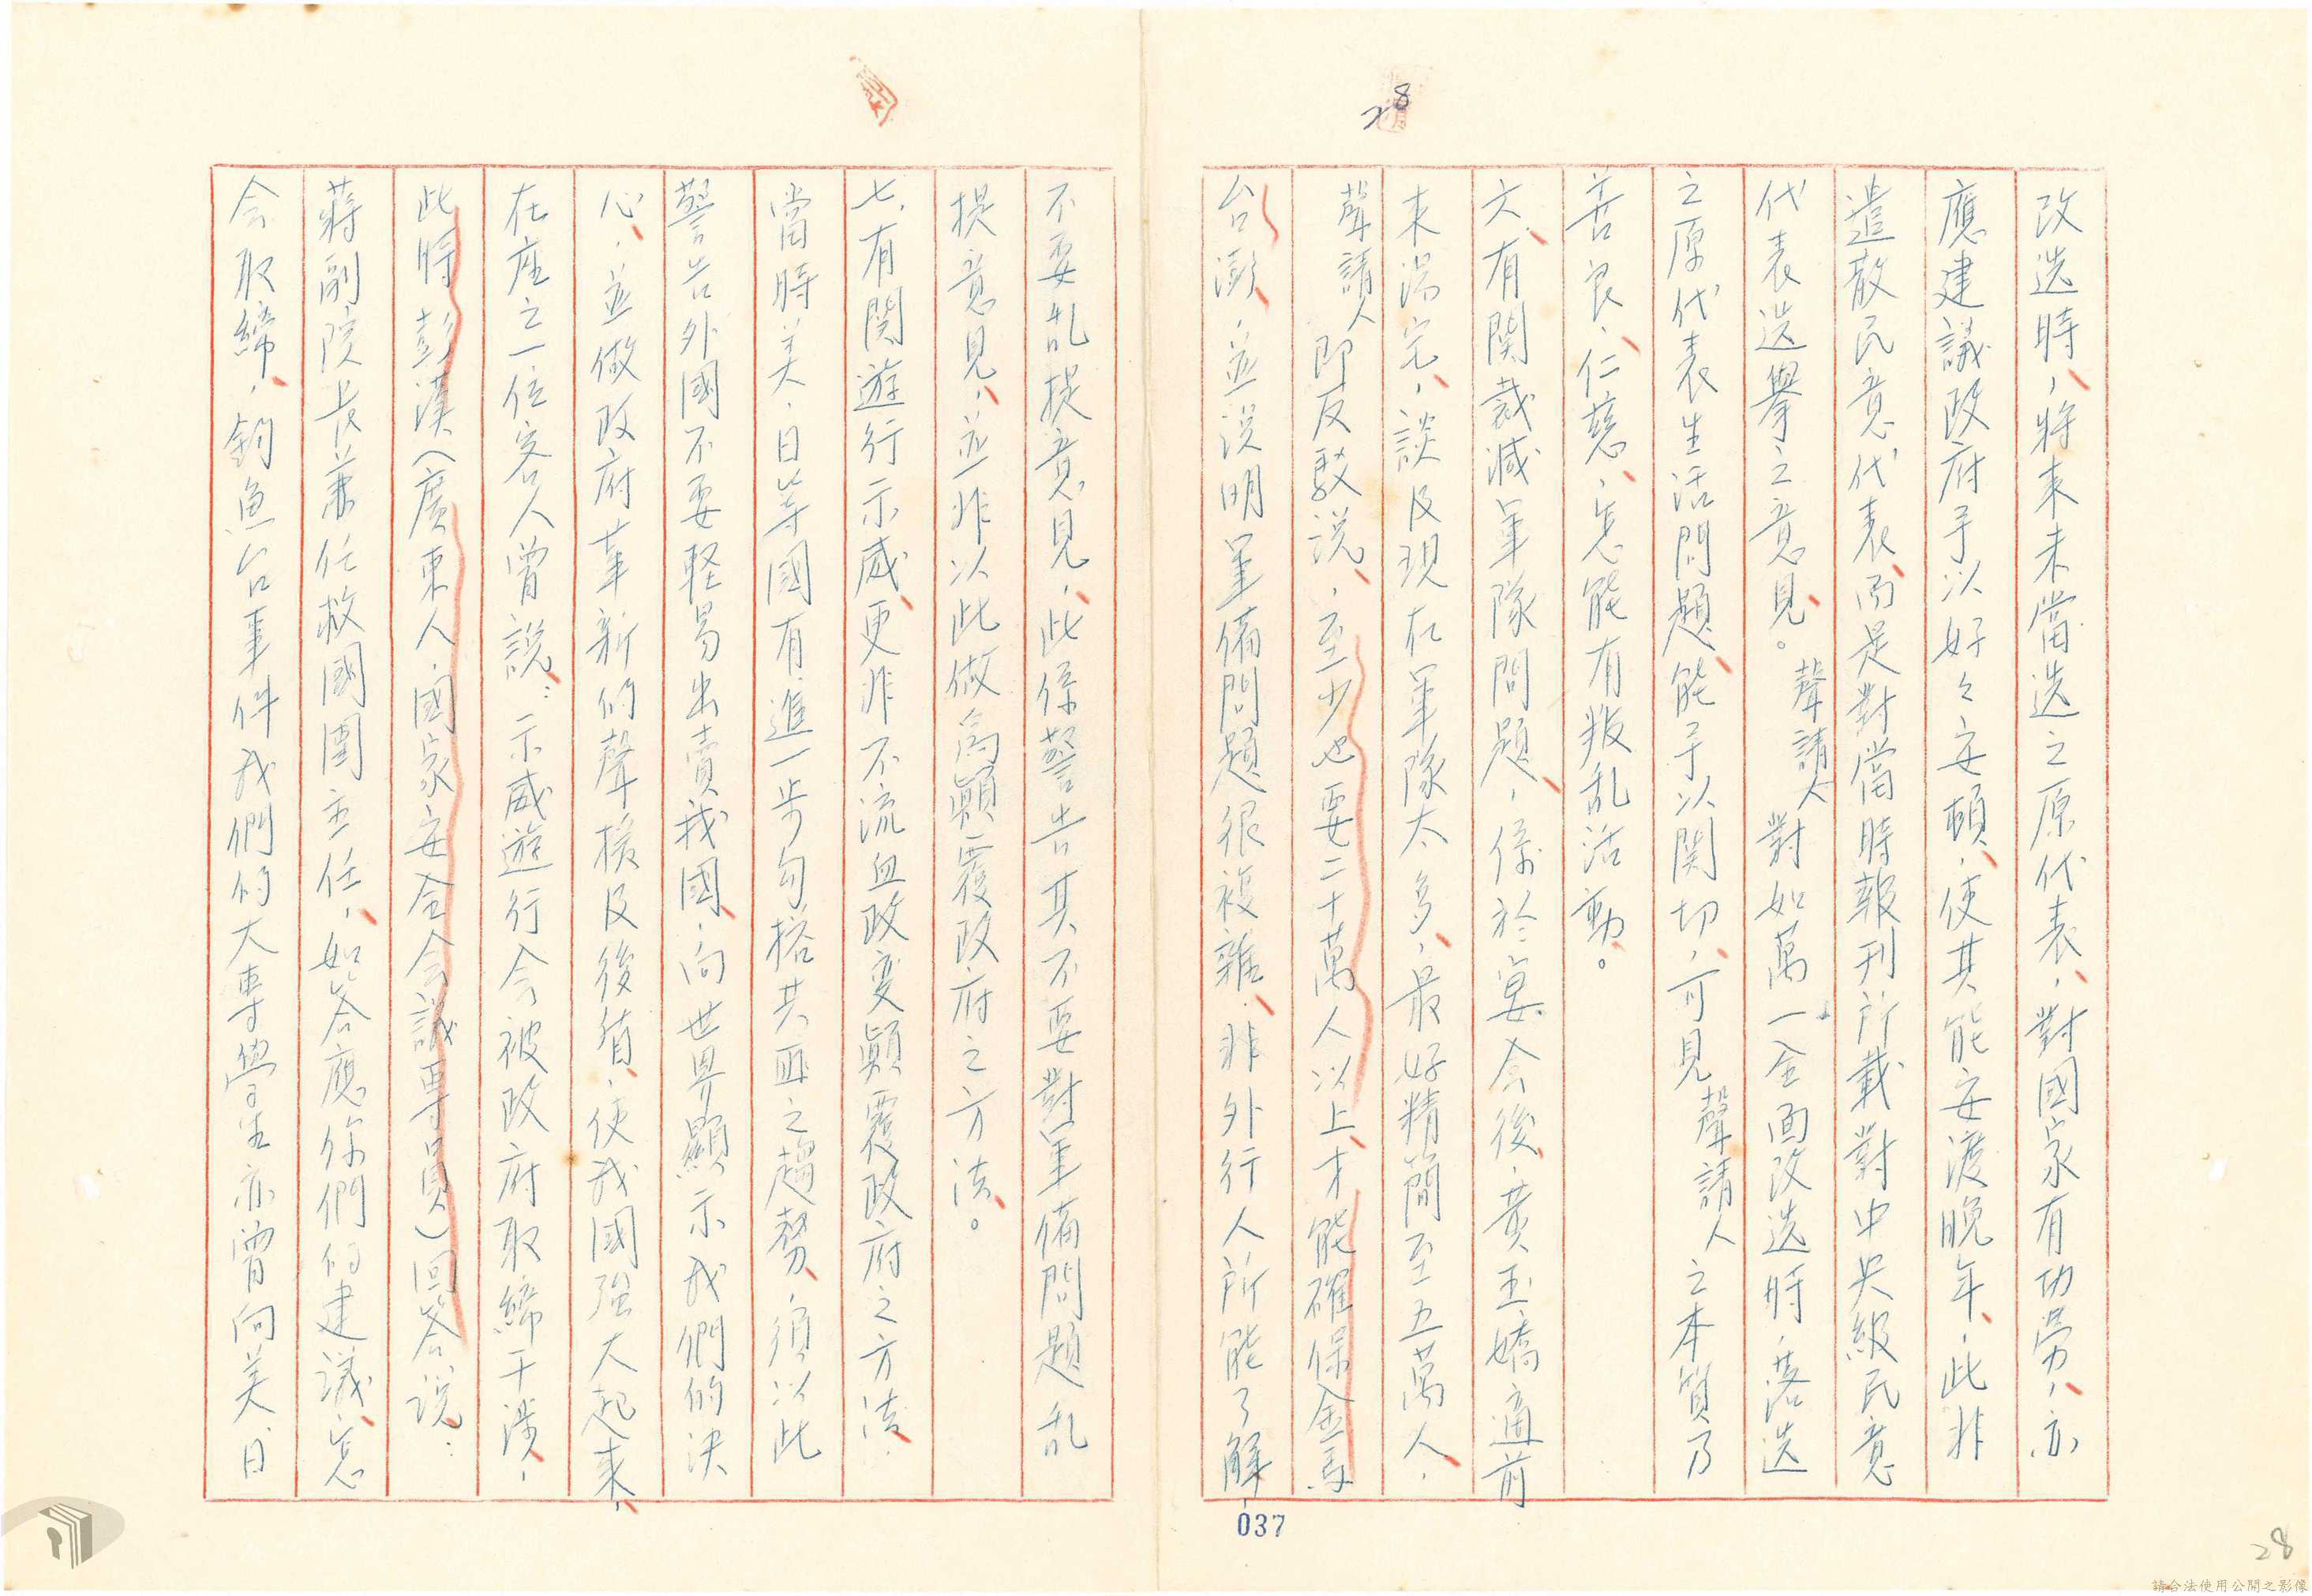 28
改选時，將來未當选之原代表，對國家有功勞，亦
應建議政府予以好々安頓，使其能安渡晚年，此非
遣散民意代表，而是對當時報刊所載對中央級民意
代表选舉之意見。聲請人對如萬一全面改选時，落选
之原代表生活問題，能予以関切，可見聲請人之本質乃
善良、仁慈，怎能有叛乱活動。
六、有関裁減軍隊問題，係於宴会後，黃玉嬌適前
来湯完，談及現在軍隊太多，最好精簡至五萬人，
聲請人即反駁説，至少也要二十萬人以上才能確保金馬
台澎，並説明軍備問題很複雜，非外行人所能了解，
037
不要乱提意見，此係警告其不要對軍備問題乱
提意見，並非以此做為顛覆政府之方法。
七、有関遊行示威，更非不流血政变顛覆政府之方法，
當時美、日等國有進一步勾搭共匪之趨勢，須以此
警告外國不要輕易出賣我國，向世界顯示我們的決
心，並做政府革新的聲援及後盾，使我國強大起來，
在座之一位客人曾説：示威遊行会被政府取締干涉，
此時彭漢（廣東人，國家安全会議專員）回答説：
蔣副院長兼任救國團主任，如答應你們的建議，怎
会取締，釣魚台事件我們的大專學生亦曾向美、日
28
請合法使用公開之影像